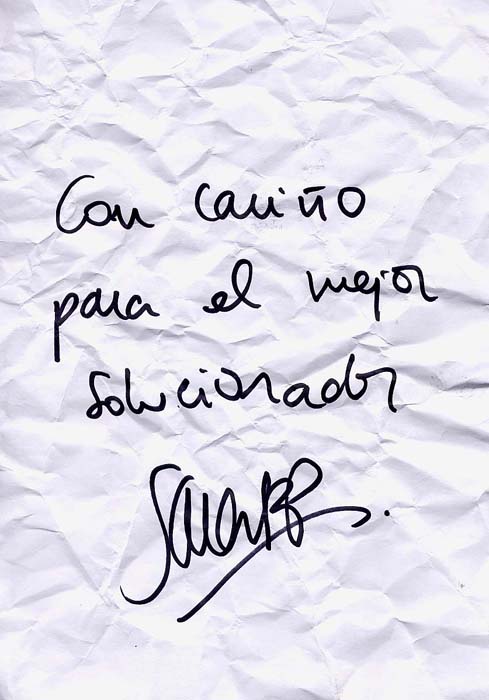 Con cariño
para el mejor
solucionador